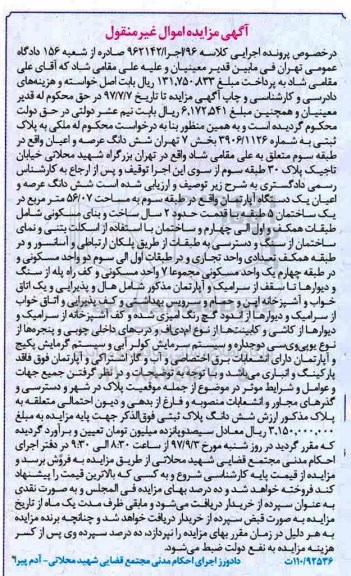 آگهی مزایده اموال غیر منقول
درخصوص پرونده اجرایی کلاسه ۹۶/اجرا/۹۶۲۱۴۲ صادره از شعبه ۱۵۶ دادگاه
عمومی تهران فی مابین قدیر معینیان و علیه علی مقامی شاد که آقای علی
مقامی شاد به پرداخت مبلغ ۱۳۱,۷۵۰,۸۳۳ ریال بابت اصل خواسته و هزینه‌های
دادرسی و کارشناسی و چاپ آگهی مزایده تا تاریخ ۹۷/۷/۷ در حق محکوم له قدیر
معینیان و همچنین مبلغ ۶,۱۷۲,۵۴۱ ریال بابت نیم عشر دولتی در حق دولت
محکوم گردیده است و به همین منظور بنا به درخواست محکوم له ملکی به پلاک
ثبتی به شماره ۳۹۰۶/۱۱۲۶ بخش ۷ تهران شش دانگ عرصه و اعیان واقع در
طبقه سوم متعلق به علی مقامی شاد واقع در تهران بزرگراه شهید محلاتی خیابان
تاجیک پلاک ۳۰ طبقه سوم از سوی این اجرا توقیف و پس از ارجاع به کارشناس
رسمی دادگستری به شرح زیر توصیف و ارزیابی شده است شش دانگ عرصه و
اعیان یک دستگاه آپارتمان واقع در طبقه سوم به مساحت ۵۶/۰۷ متر مربع در
یک ساختمان ۵ طبقه با قدمت حدود ۲ سال ساخت و بنای مسکونی شامل
طبقات همکف و اول الی چهارم و ساختمان با استفاده از اسکلت بتنی و نمای
ساختمان از سنگ و دسترسی به طبقات از طریق پلکان ارتباطی و آسانسور و در
طبقه همکف تعدادی واحد تجاری و در طبقات اول الی سوم دو واحد مسکونی و
در طبقه چهارم یک واحد مسکونی مجموعا ۷ واحد مسکونی و کف راه پله از سنگ
و دیوارها تا سقف از سرامیک و آپارتمان مذکور شامل هال و پذیرایی و یک اتاق
خواب و آشپزخانه اپن و حمام و سرویس بهداشتی و کف پذیرایی و اتاق خواب
از سرامیک و دیوارها از اندود گچ رنگ آمیزی شده و کف آشپزخانه از سرامیک و
دیوارها از کاشی و کابینت‌ها از نوع ام‌دی‌اف و درب‌های داخلی چوبی و پنجره‌ها از
نوع یو‌پی‌وی‌سی دوجداره و سیستم سرمایش کولر آبی و سیستم گرمایش پکیج
و آپارتمان دارای انشعابات برق اختصاصی و آب و گاز اشتراکی و آپارتمان فوق فاقد
پارکینگ و انباری می‌باشد و با توجه به توضیحات و در نظر گرفتن جمیع جهات
و عوامل و شرایط موثر در موضوع از جمله موقعیت پلاک در شهر و دسترسی و
گذرهای مجاور و انشعابات منصوبه و فارغ از بدهی و دیون احتمالی متعلقه به
پلاک مذکور ارزش شش دانگ پلاک ثبتی فوق‌الذکر جهت پایه مزایده به مبلغ
۳,۱۵۰,۰۰۰,۰۰۰ ریال معادل سیصدوپانزده میلیون تومان تعیین و برآورد گردیده
که مقرر گردید در روز شنبه مورخ ۹۷/۹/۳ از ساعت ۸:۳۰ الی ۹:۳۰ در دفتر اجرای
احکام مدنی مجتمع قضایی شهید محلاتی از طریق مزایده به فروش برسد و
مزایده از قیمت پایه کارشناسی شروع و به کسی که بالاترین قیمت را پیشنهاد
کند فروخته خواهد شد و ده درصد بهای مزایده فی المجلس و به صورت نقدی
به عنوان سپرده از خریدار دریافت می‌شود و مابقی ظرف مدت یک ماه از تاریخ
مزایده به صورت قبض سپرده از خریدار دریافت خواهد شد و چنانچه برنده مزایده
به هر دلیل در زمان مقرر بهای مزایده را نپردازد، ده درصد سپرده وی پس از کسر
هزینه مزایده به نفع دولت ضبط می‌شود.
۱۱۰/۹۲۵۳۶ت دادورز اجرای احکام مدنی مجتمع قضایی شهید محلاتی - آدم پیرا